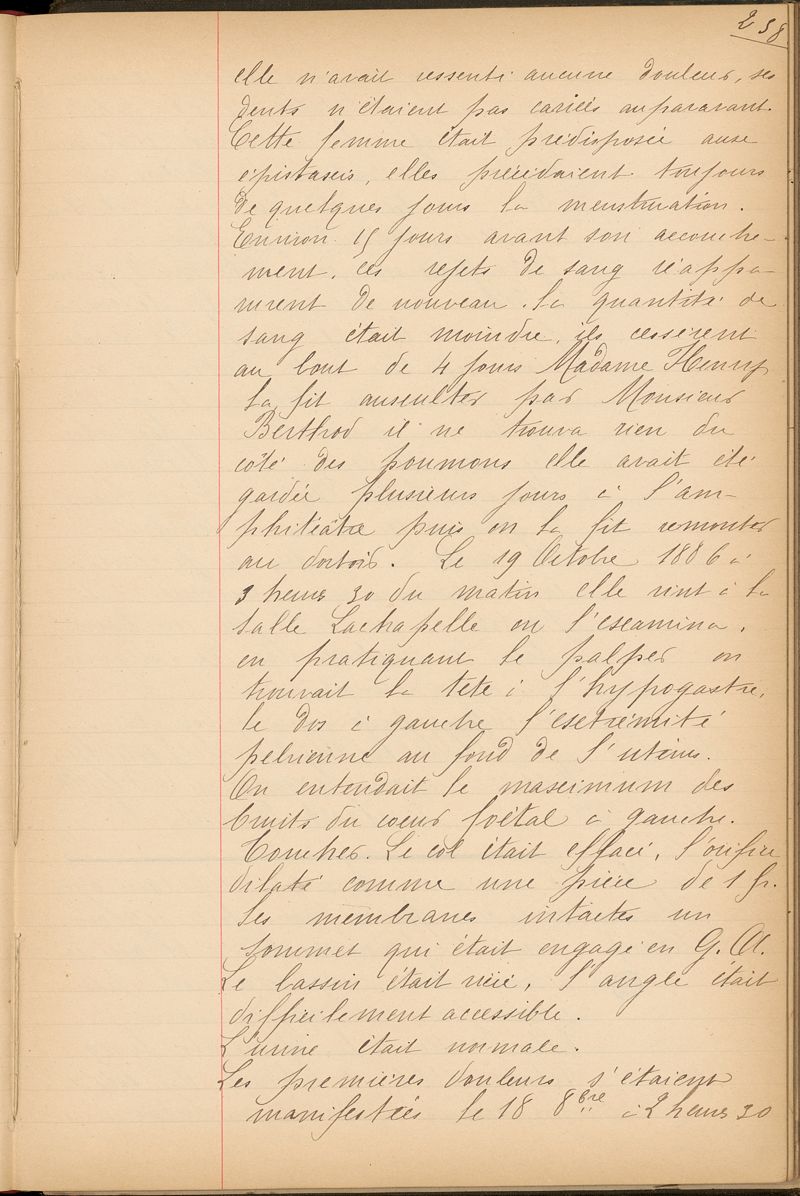 238
elle n'avait ressenti aucune douleur, ses
dents n'étaient pas cariées auparavant.
Cette femme était prédisposée aux
épistaxis, elles précédaient toujours
de quelques jours la menstruation.
Environ 15 jours avant son accouche-
ment, ces rejets de sang réappa-
rurent de nouveau. la quantité de
sang était moindre, ils cessèrent
au bout de 4 jours Madame Henry
la fit ausculter par Monsieur
Berthod il ne trouva rien du
côté des poumons elle avait été
gardée plusieurs jours à l'am-
phitéâtre puis on la fit remonter
au dortoir. Le 19 Octobre 1886 à
3 heures 30 du matin elle vint à la
salle Lachapelle on l'examina,
en pratiquant le palper on
trouvait la tête à l'hypogastre,
le dos à gauche l'extrémité
pelvienne au fond de l'utérus.
On entendait le maximum des
bruits du coeur foetal à gauche.
Toucher. Le col était effacé, l'orifice
dilaté comme une pièce de 1 fr.
les membranes intactes un
sommet qui était engagé en G. A.
Le bassin était vicié, l'angle était
difficilement accessible.
L'urine était normale.
Les premières douleurs s'étaient
manifestées le 18 8bre à 2 heures 30